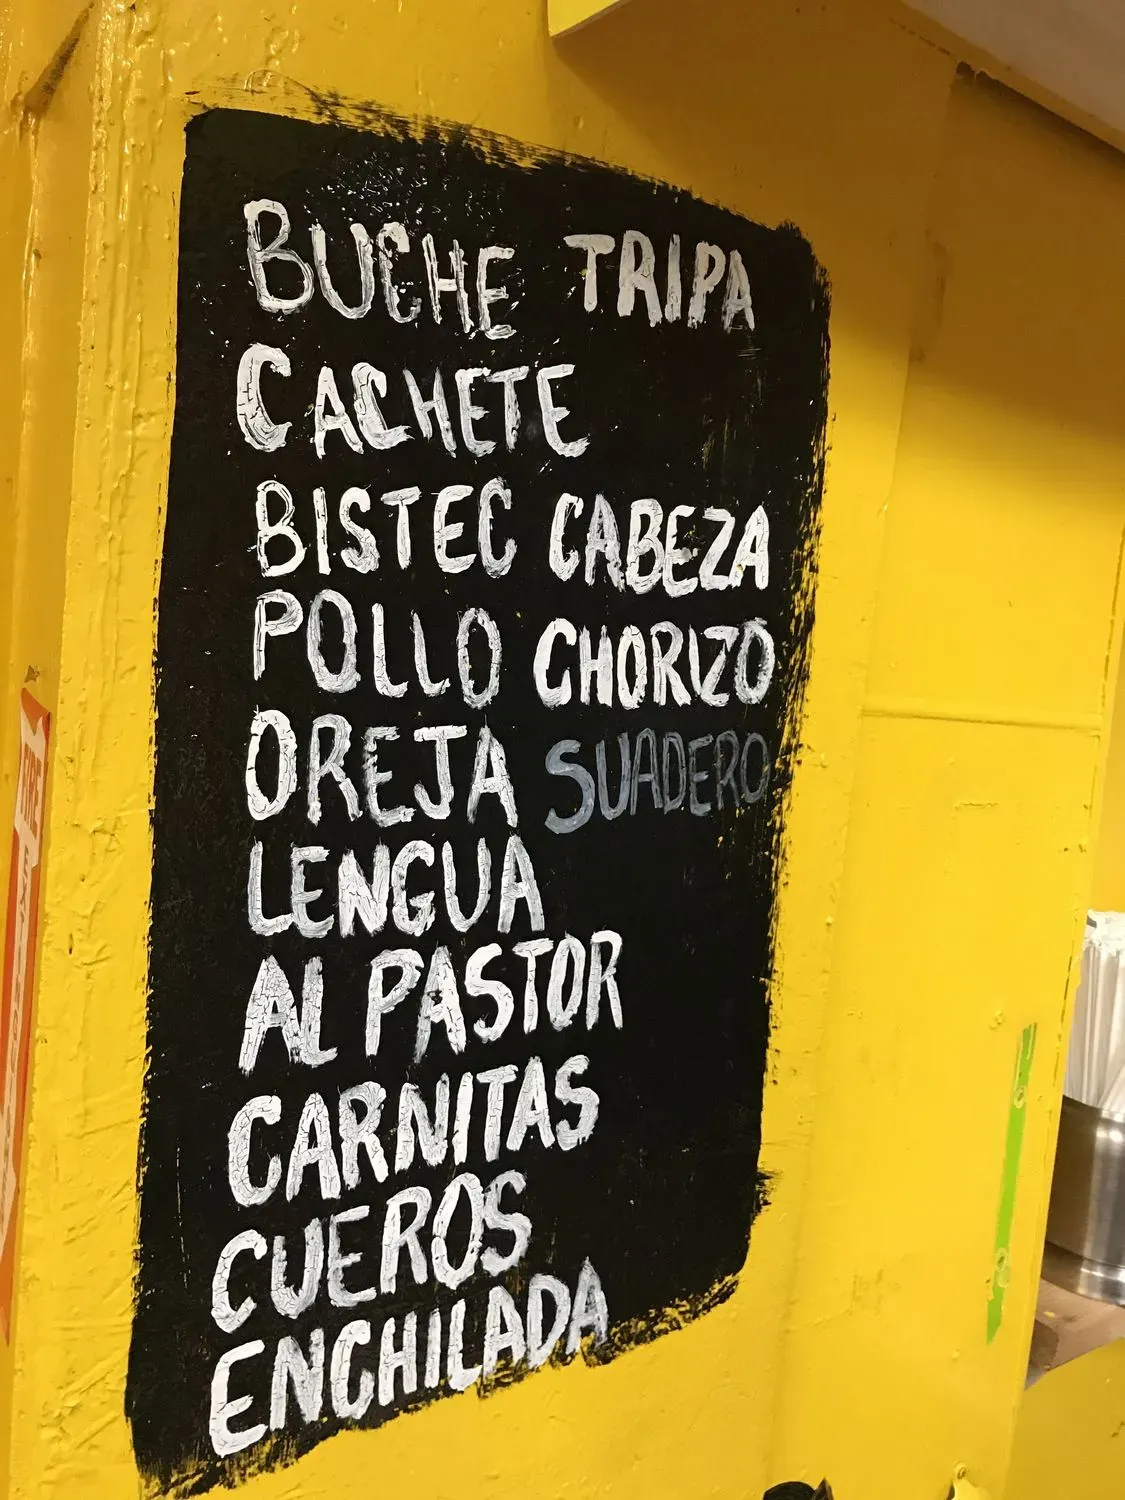 BUCHE TRIPA
CACHETE
BISTEC CABEZA
POLLO CHORIZO
OREJA SUADERO
LENGUA
AL PASTOR
CARNITAS
CUEROS
ENCHILADA